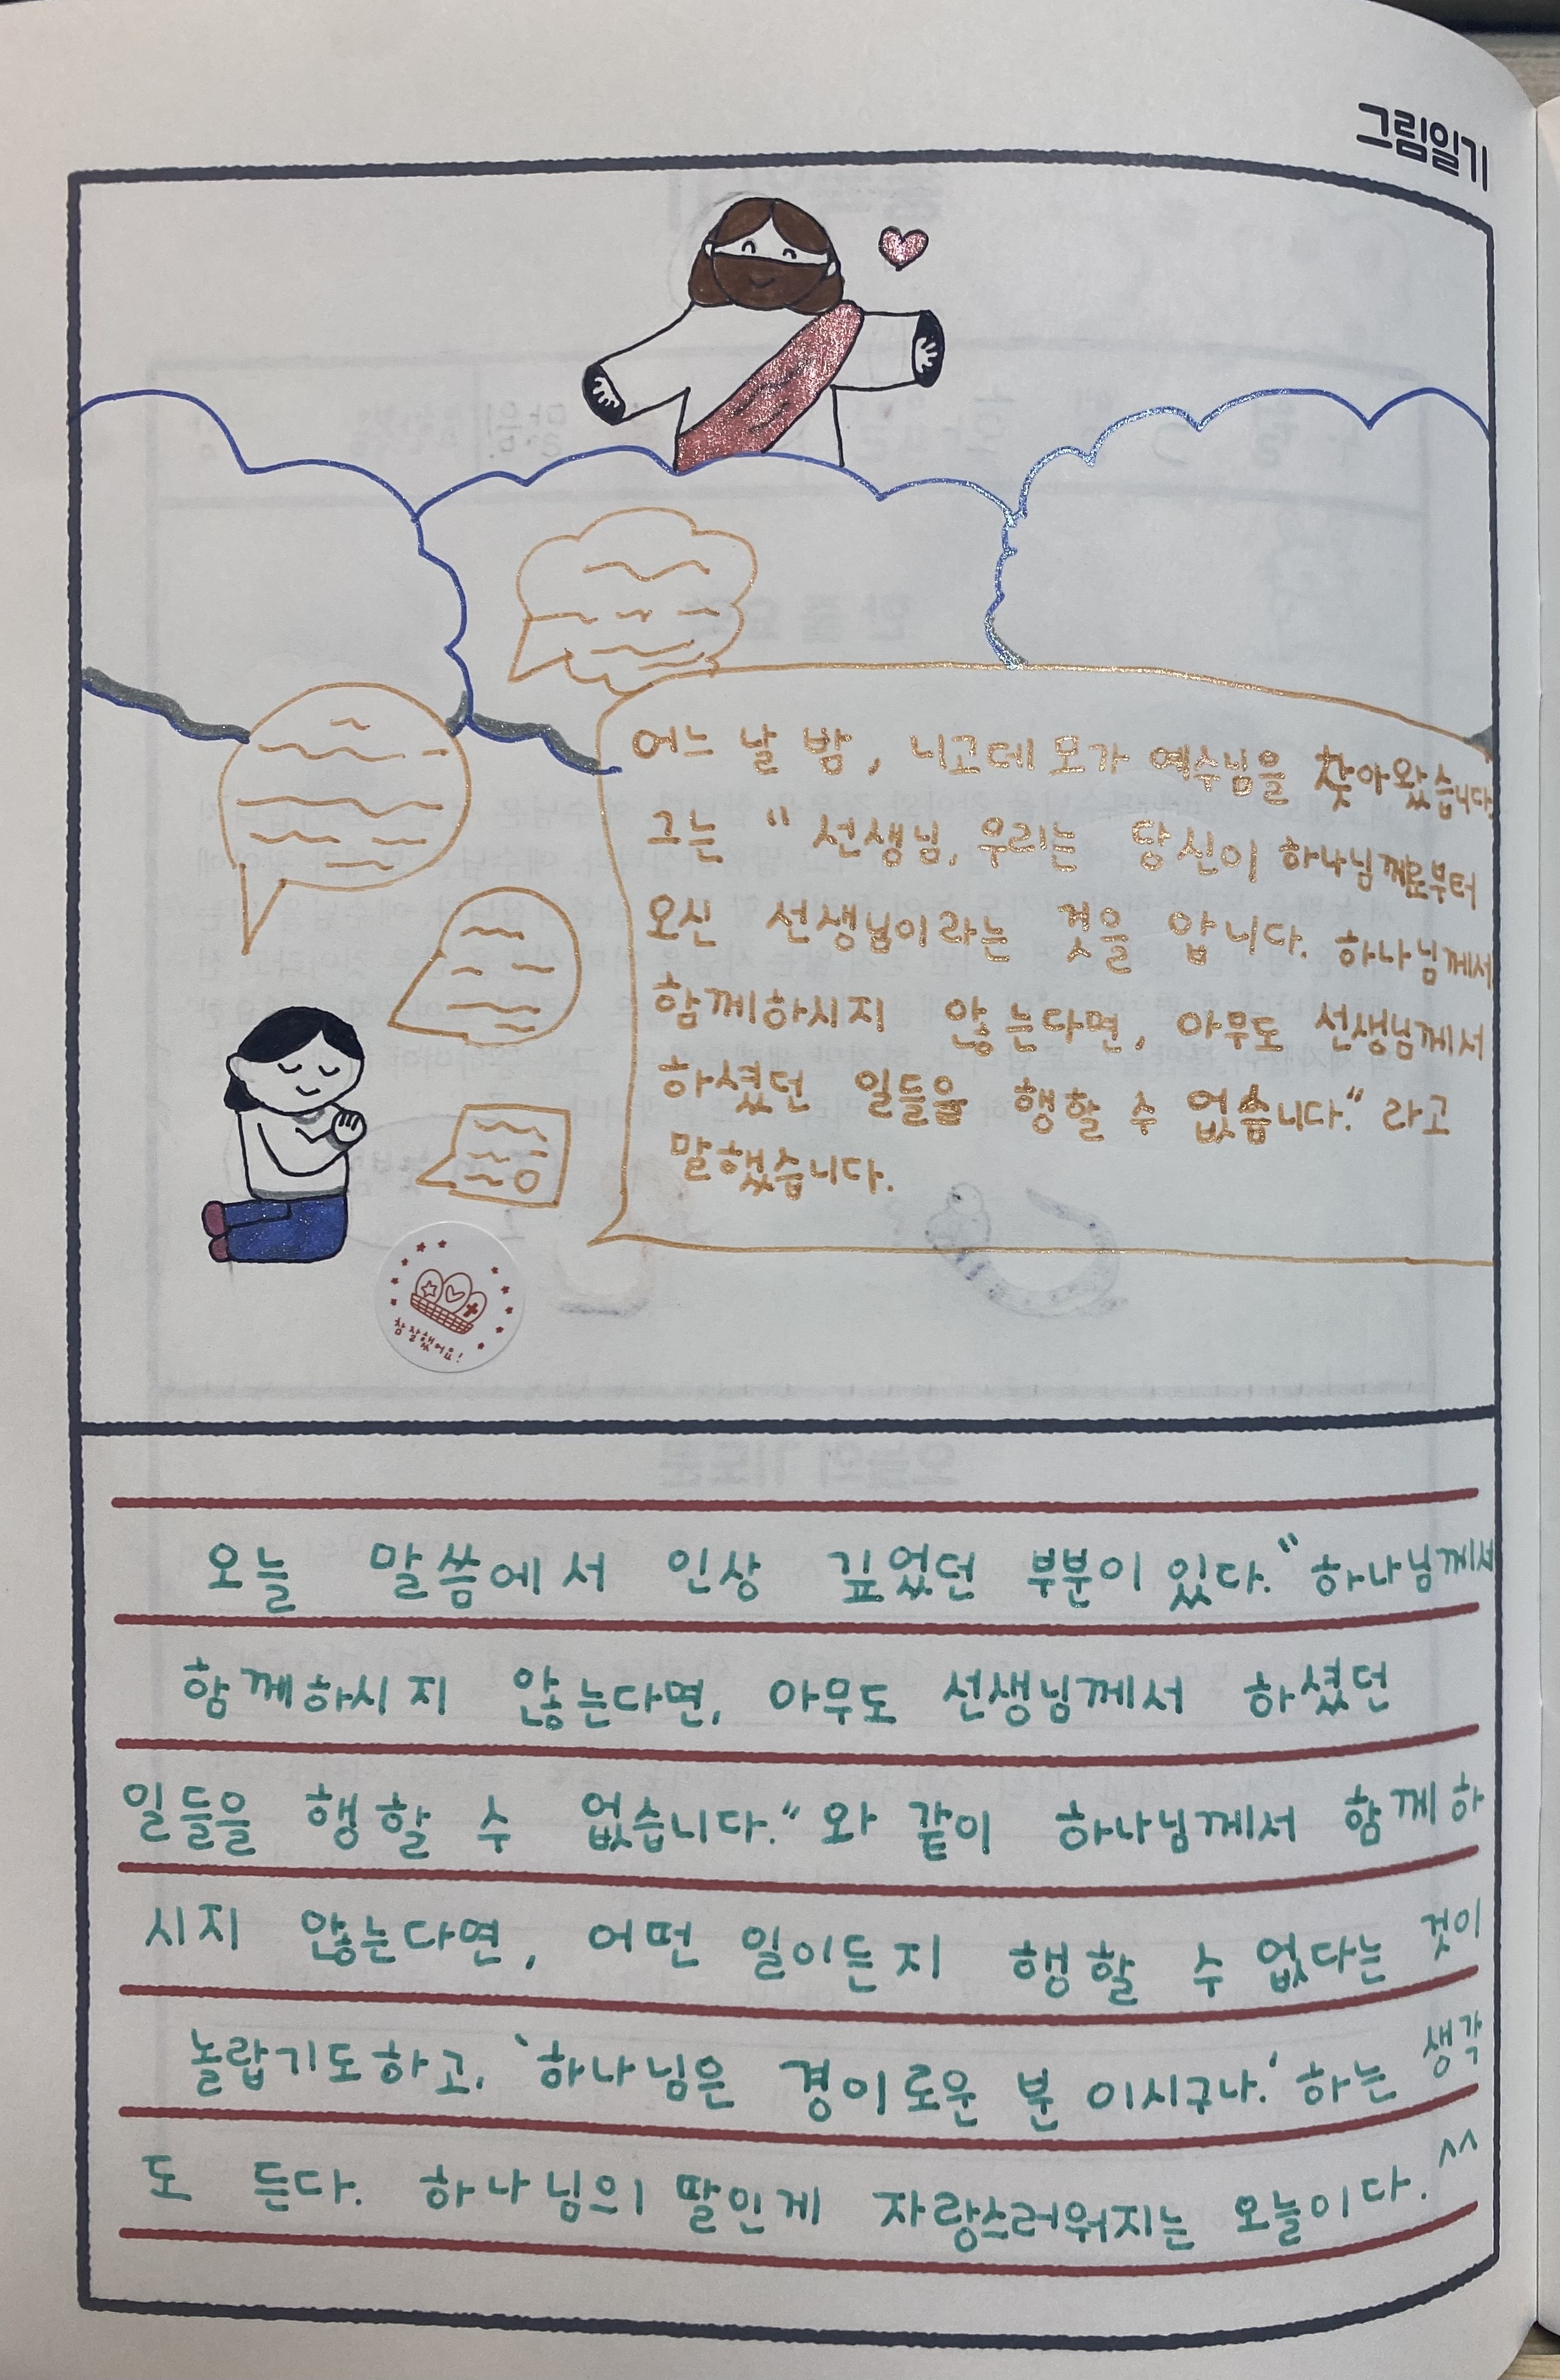 그림일기
어느 날 밤, 니고데모가 예수님을 찾아왔습니다.
그는 "선생님, 우리는 당신이 하나님께로부터
오신 선생님이라는 것을 압니다. 하나님께서
함께하시지 않는다면, 아무도 선생님께서
하셨던 일들을 행할 수 없습니다." 라고
말했습니다.
참 잘했어요!
오늘 말씀에서 인상 깊었던 부분이 있다. "하나님께서
함께하시지 않는다면, 아무도 선생님께서 하셨던
일들을 행할 수 없습니다." 와 같이 하나님께서 함께하
시지 않는다면, 어떤 일이든지 행할 수 없다는 것이
놀랍기도하고, '하나님은 경이로운 분 이시구나.' 하는 생각
도 든다. 하나님의 딸인게 자랑스러워지는 오늘이다. ^^